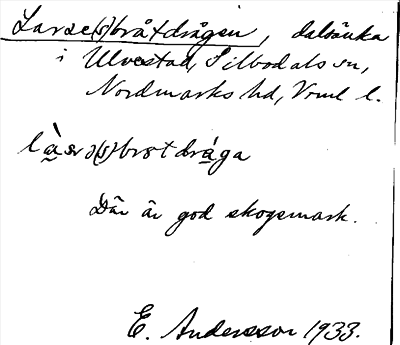 Larse(s)bråtdrågen, dalsänka
i Ulvestad, Silbodals sn,
Nordmarks hd, Vrml l.
là̤sɘ(s)brɘtdrá̤ga
Där är god skogsmark.
E. Andersson 1933.